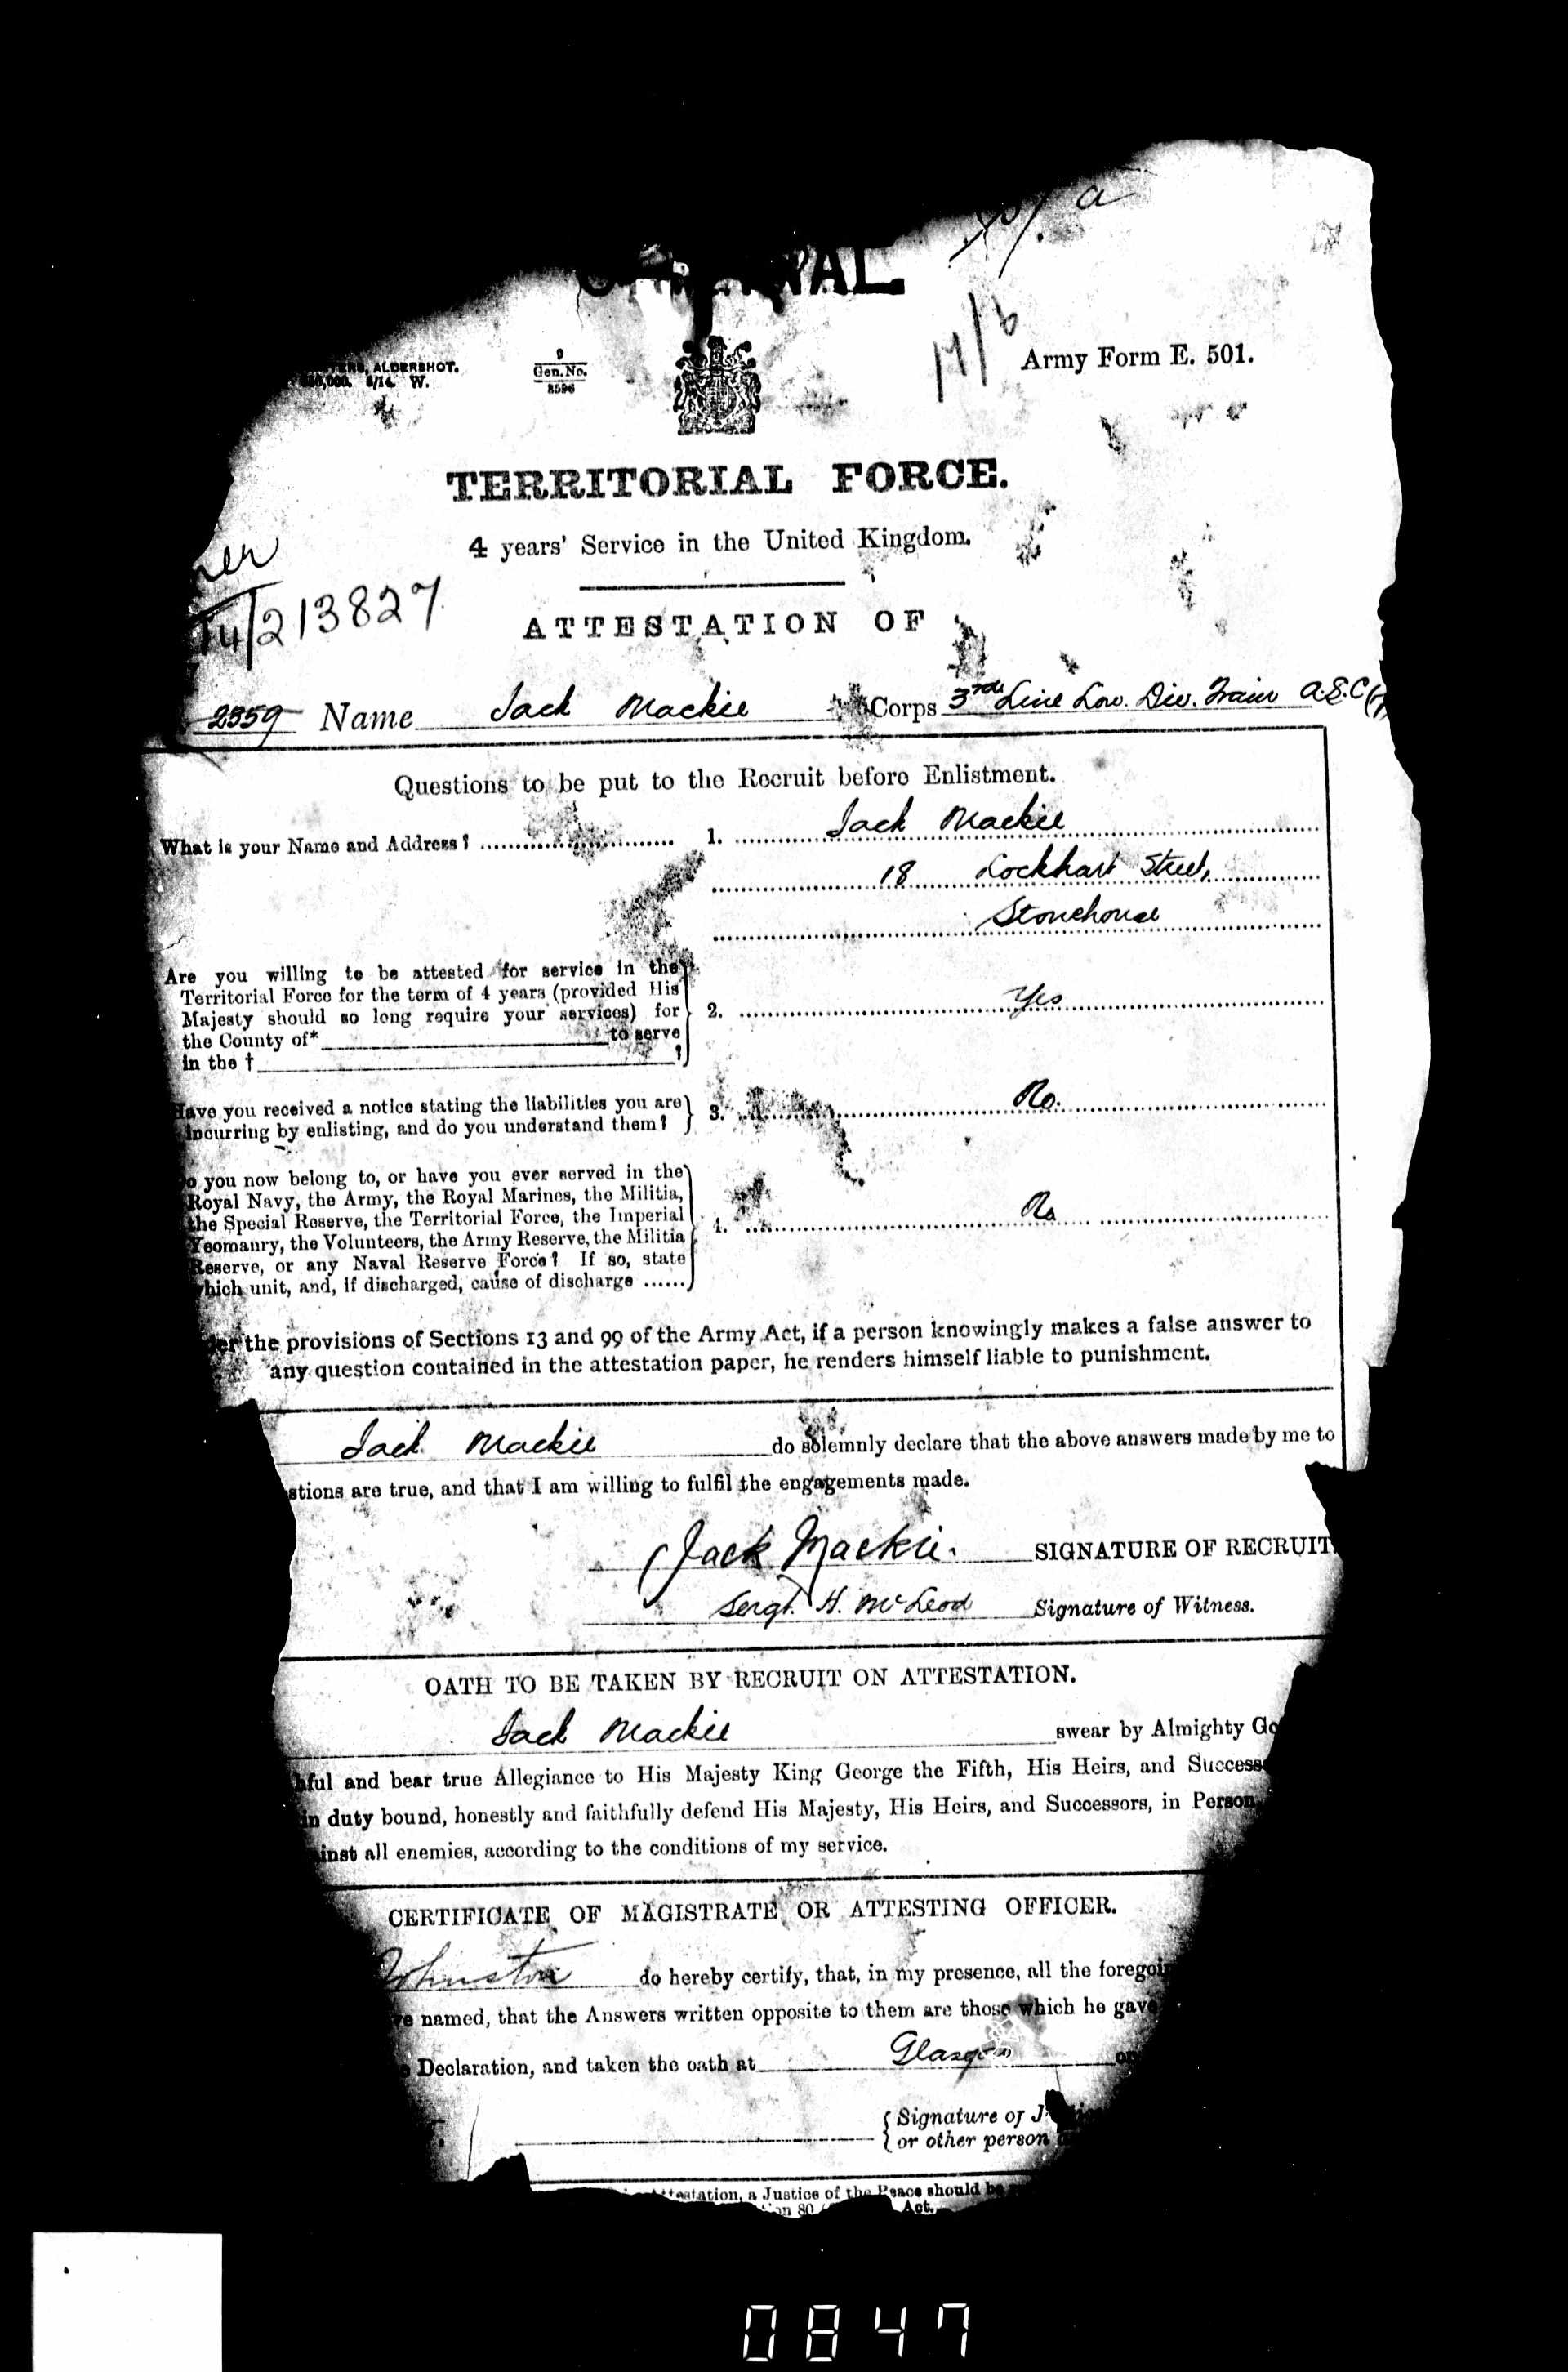 a
17/6
Army Form E. 501.
ALDERSHOT.
8/14. W.
9
Gen. No.
8596
TERRITORIAL FORCE.
4 years' Service in the United Kingdom.
T4/213827
ATTESTATION OF
2359 Name Jack Mackie Corps 3rd Line Low. Div. Train A.S.C (T
Questions to be put to the Recruit before Enlistment.
What is your Name and Address? 1. Jack Mackie
18 Lockhart Street,
Stonehouse
Are you willing to be attested for service in the
Territorial Force for the term of 4 years (provided His
Majesty should so long require your services) for
the County of* to serve
in the † ?
2. Yes
Have you received a notice stating the liabilities you are
incurring by enlisting, and do you understand them?
3. No.
o you now belong to, or have you ever served in the
Royal Navy, the Army, the Royal Marines, the Militia,
the Special Reserve, the Territorial Force, the Imperial
Yeomanry, the Volunteers, the Army Reserve, the Militia
Reserve, or any Naval Reserve Force? If so, state
which unit, and, if discharged, cause of discharge ......
4. No
der the provisions of Sections 13 and 99 of the Army Act, if a person knowingly makes a false answer to
any question contained in the attestation paper, he renders himself liable to punishment.
Jack Mackie do solemnly declare that the above answers made by me to
stions are true, and that I am willing to fulfil the engagements made.
Jack Mackie. SIGNATURE OF RECRUIT.
Sergt. H. McLeod Signature of Witness.
OATH TO BE TAKEN BY RECRUIT ON ATTESTATION.
Jack Mackie swear by Almighty Go
hful and bear true Allegiance to His Majesty King George the Fifth, His Heirs, and Success
in duty bound, honestly and faithfully defend His Majesty, His Heirs, and Successors, in Person,
ainst all enemies, according to the conditions of my service.
CERTIFICATE OF MAGISTRATE OR ATTESTING OFFICER.
Johnston do hereby certify, that, in my presence, all the foregoi
e named, that the Answers written opposite to them are those which he gave
Declaration, and taken the oath at Glasgow on
Signature of J
or other person
ttestation, a Justice of the Peace should be
on 80 Act.
0847